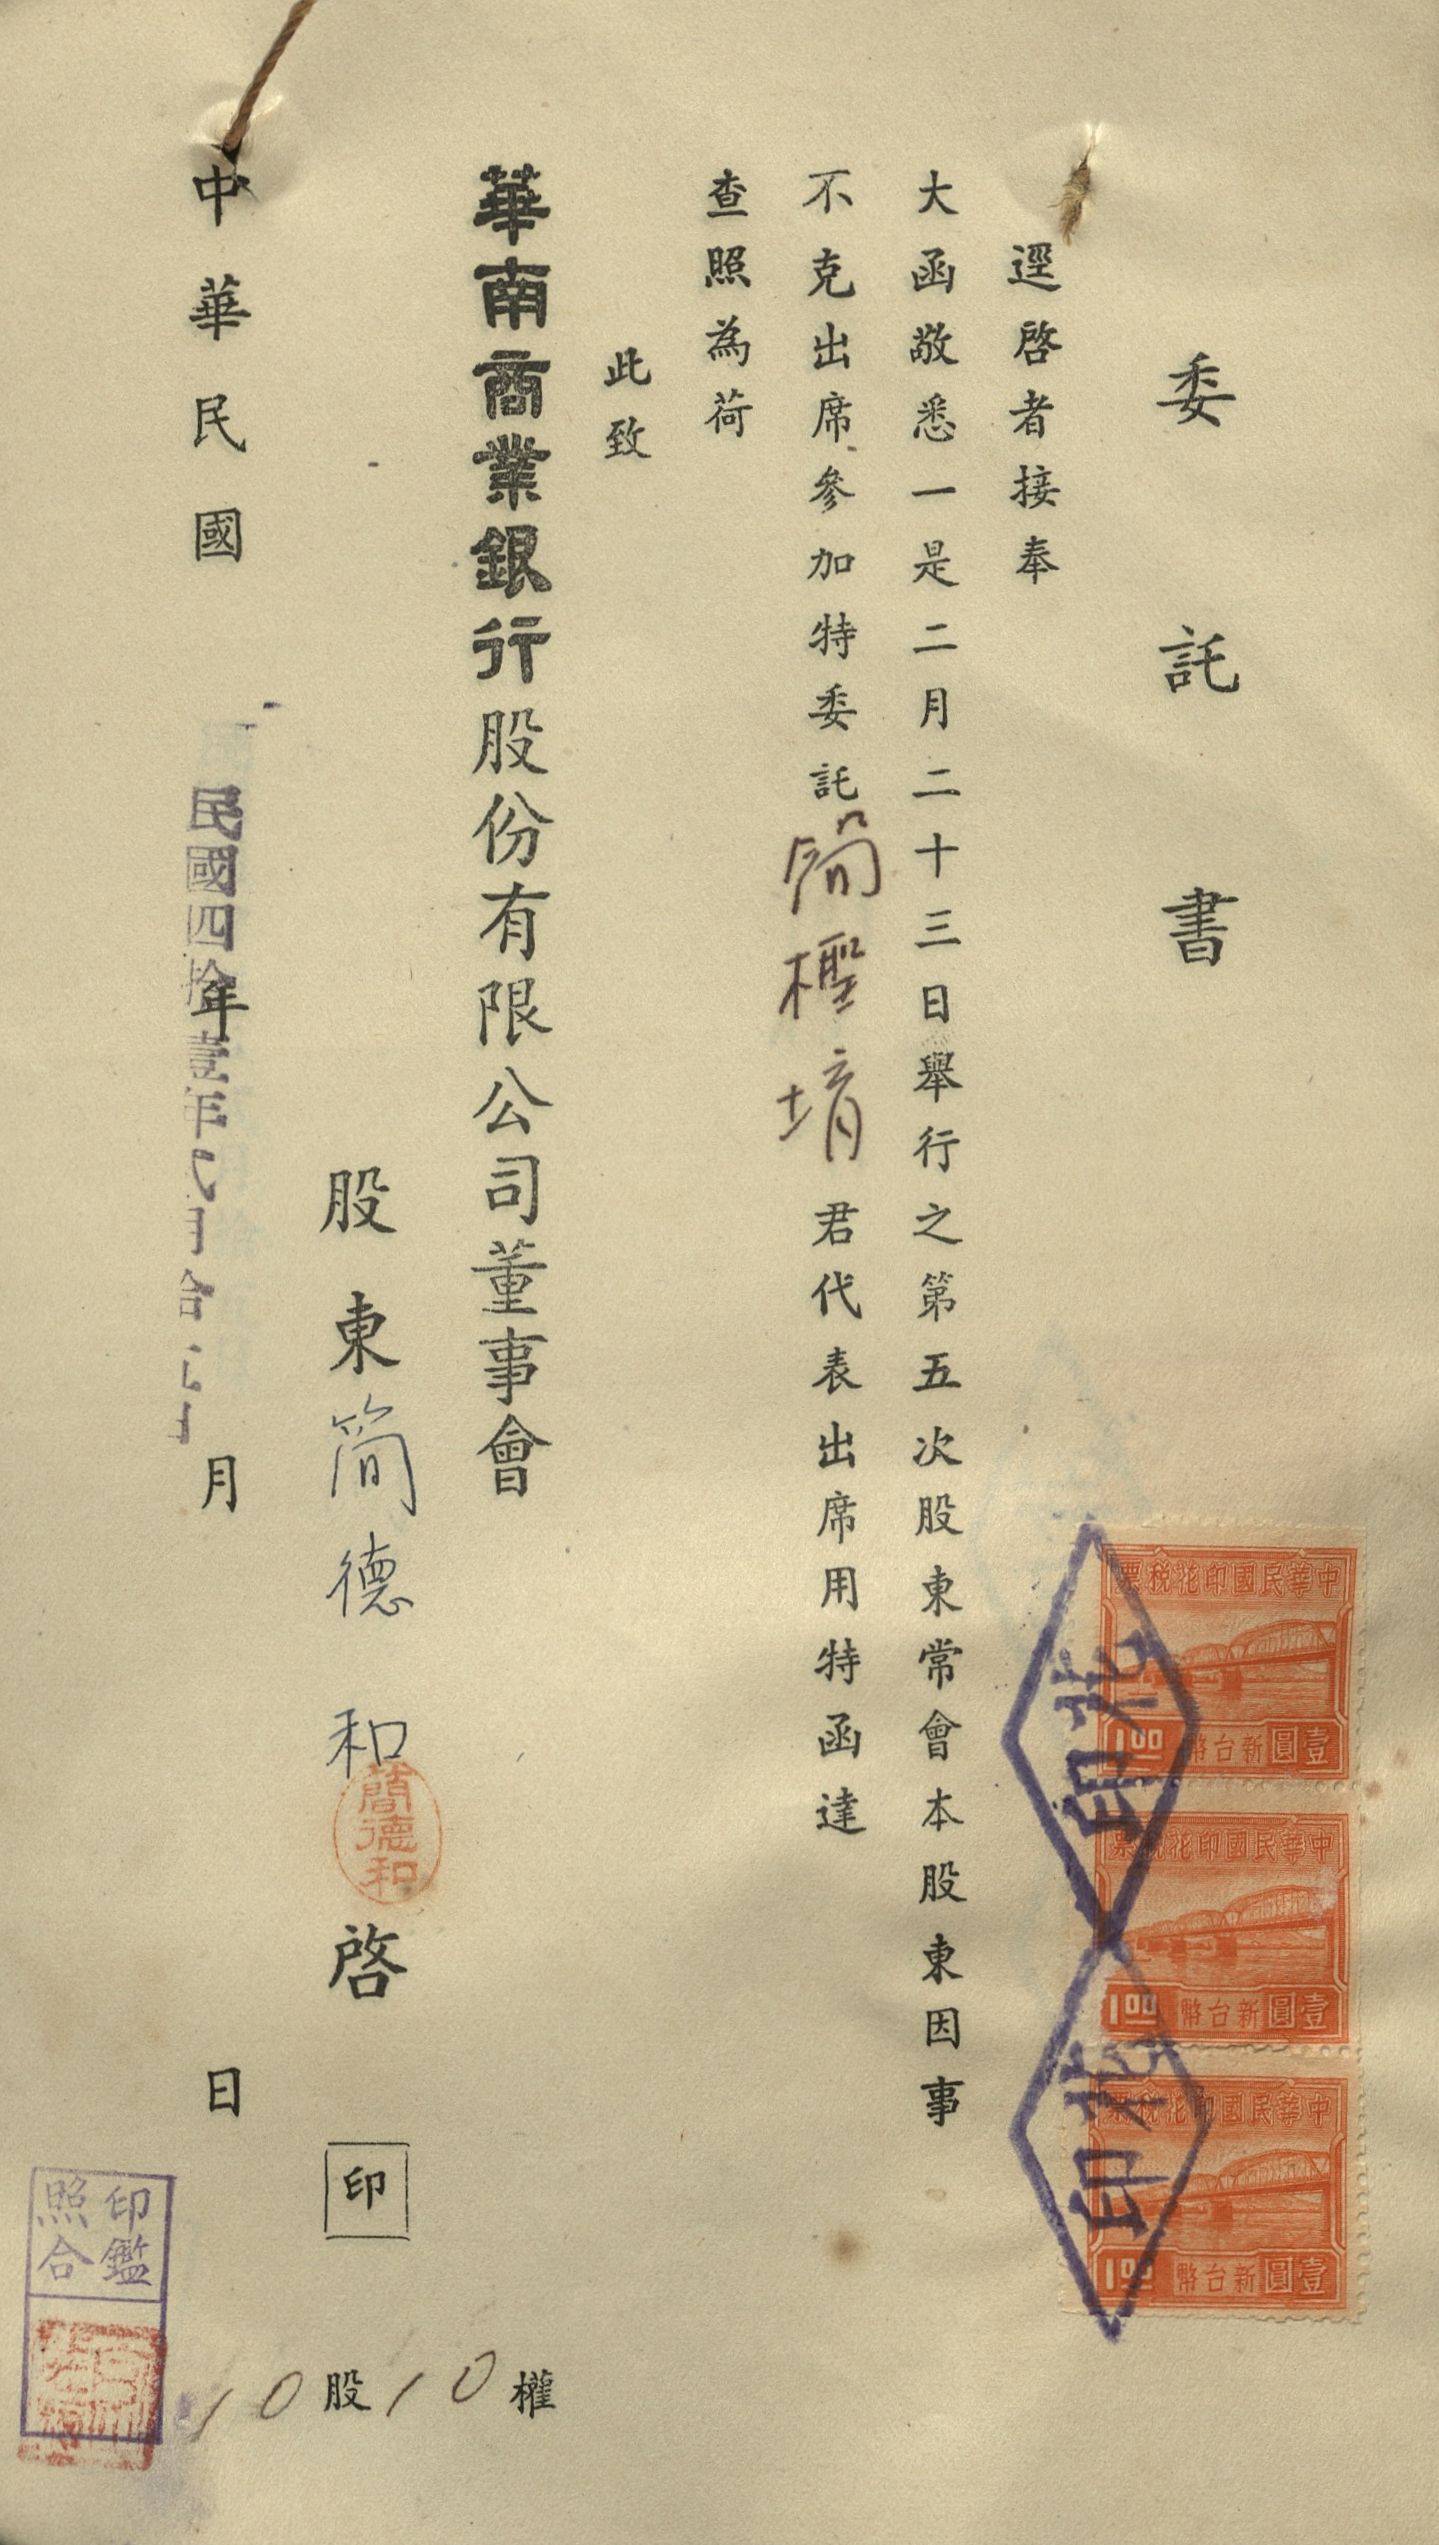 委託書
逕啓者接奉
大函敬悉一是二月二十三日舉行之第五次股東常會本股東因事
不克出席參加特委託簡檉堉君代表出席用特函達
查照為荷
此致
華南商業銀行股份有限公司董事會
股東簡德和啓印
簡德和
中華民國年月日
民國四拾壹年弍月
10股10權
印鑑
照合
中華民國印花稅票
新台幣壹圓
1.00
中華民國印花稅票
新台幣壹圓
1.00
中華民國印花稅票
新台幣壹圓
1.00
印花
印花